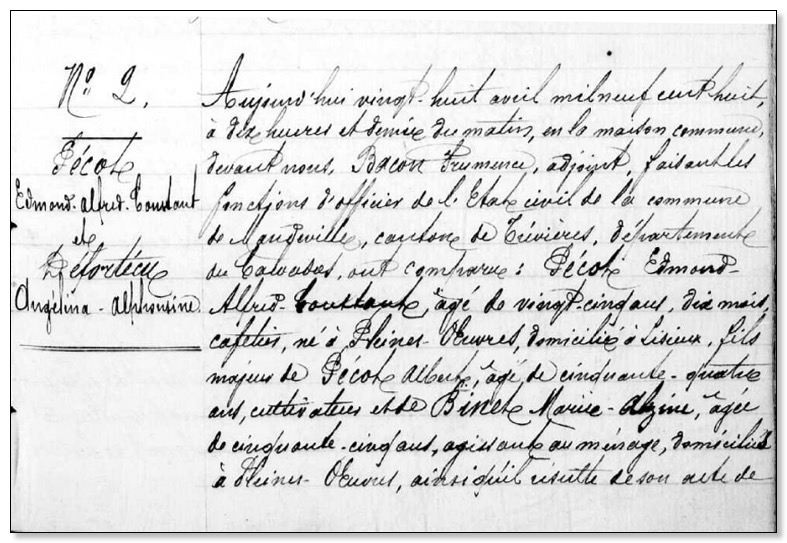 No. 2.
Pécot
Edmond-Alfred-Constant
et
Angelina-Alphonsine
Aujourd'hui vingt-huit avril mil neuf cent huit,
à dix heures et demie du matin, en la maison commune,
devant nous, Bacon Frumence, adjoint, faisant les
fonctions d'officier de l'Etat civil de la commune
de Mandeville, canton de Trévières, département
du Calvados, ont comparu : Pécot Edmond-
Alfred-Constant, âgé de vingt-cinq ans, dix mois,
cafetier, né à Pleines-Œuvres, domicilié à Lisieux, fils
majeur de Pécot Albert, âgé de cinquante-quatre
ans, cultivateur et de Binet Marie-Alzine, âgée
de cinquante-cinq ans, agissant au ménage, domiciliés
à Pleines-Œuvres, ainsi qu'il résulte de son acte de